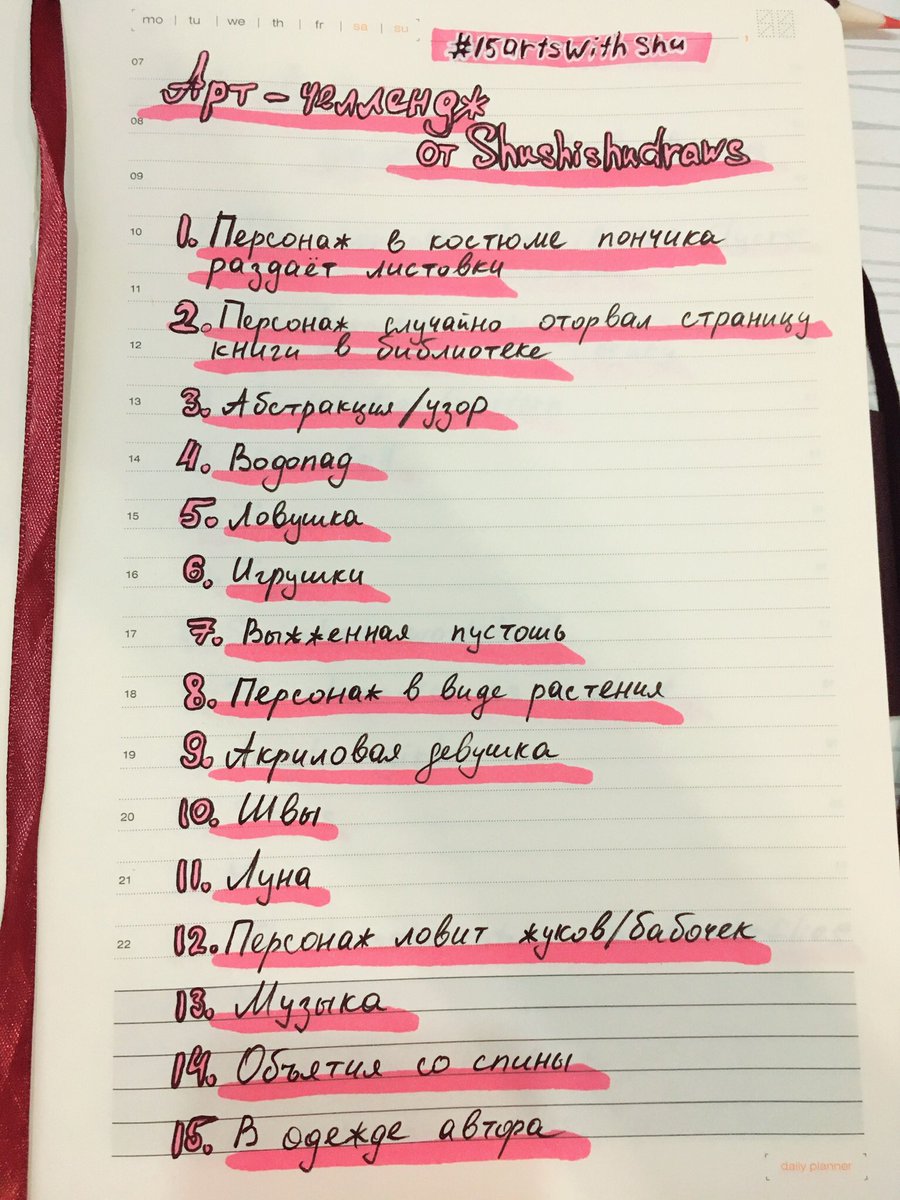 mo | tu | we | th | fr | sa | su
#15artsWithShu
07
Арт-челлендж
08
от Shushishudraws
09
10
1. Персонаж в костюме пончика
раздаёт листовки
11
2. Персонаж случайно оторвал страницу
12
книги в библиотеке
13
3. Абстракция/узор
14
4. Водопад
15
5. Ловушка
16
6. Игрушки
17
7. Выжженная пустошь
18
8. Персонаж в виде растения
19
9. Акриловая девушка
20
10. Швы
21
11. Луна
22
12. Персонаж ловит жуков/бабочек
13. Музыка
14. Объятия со спины
15. В одежде автора
daily planner